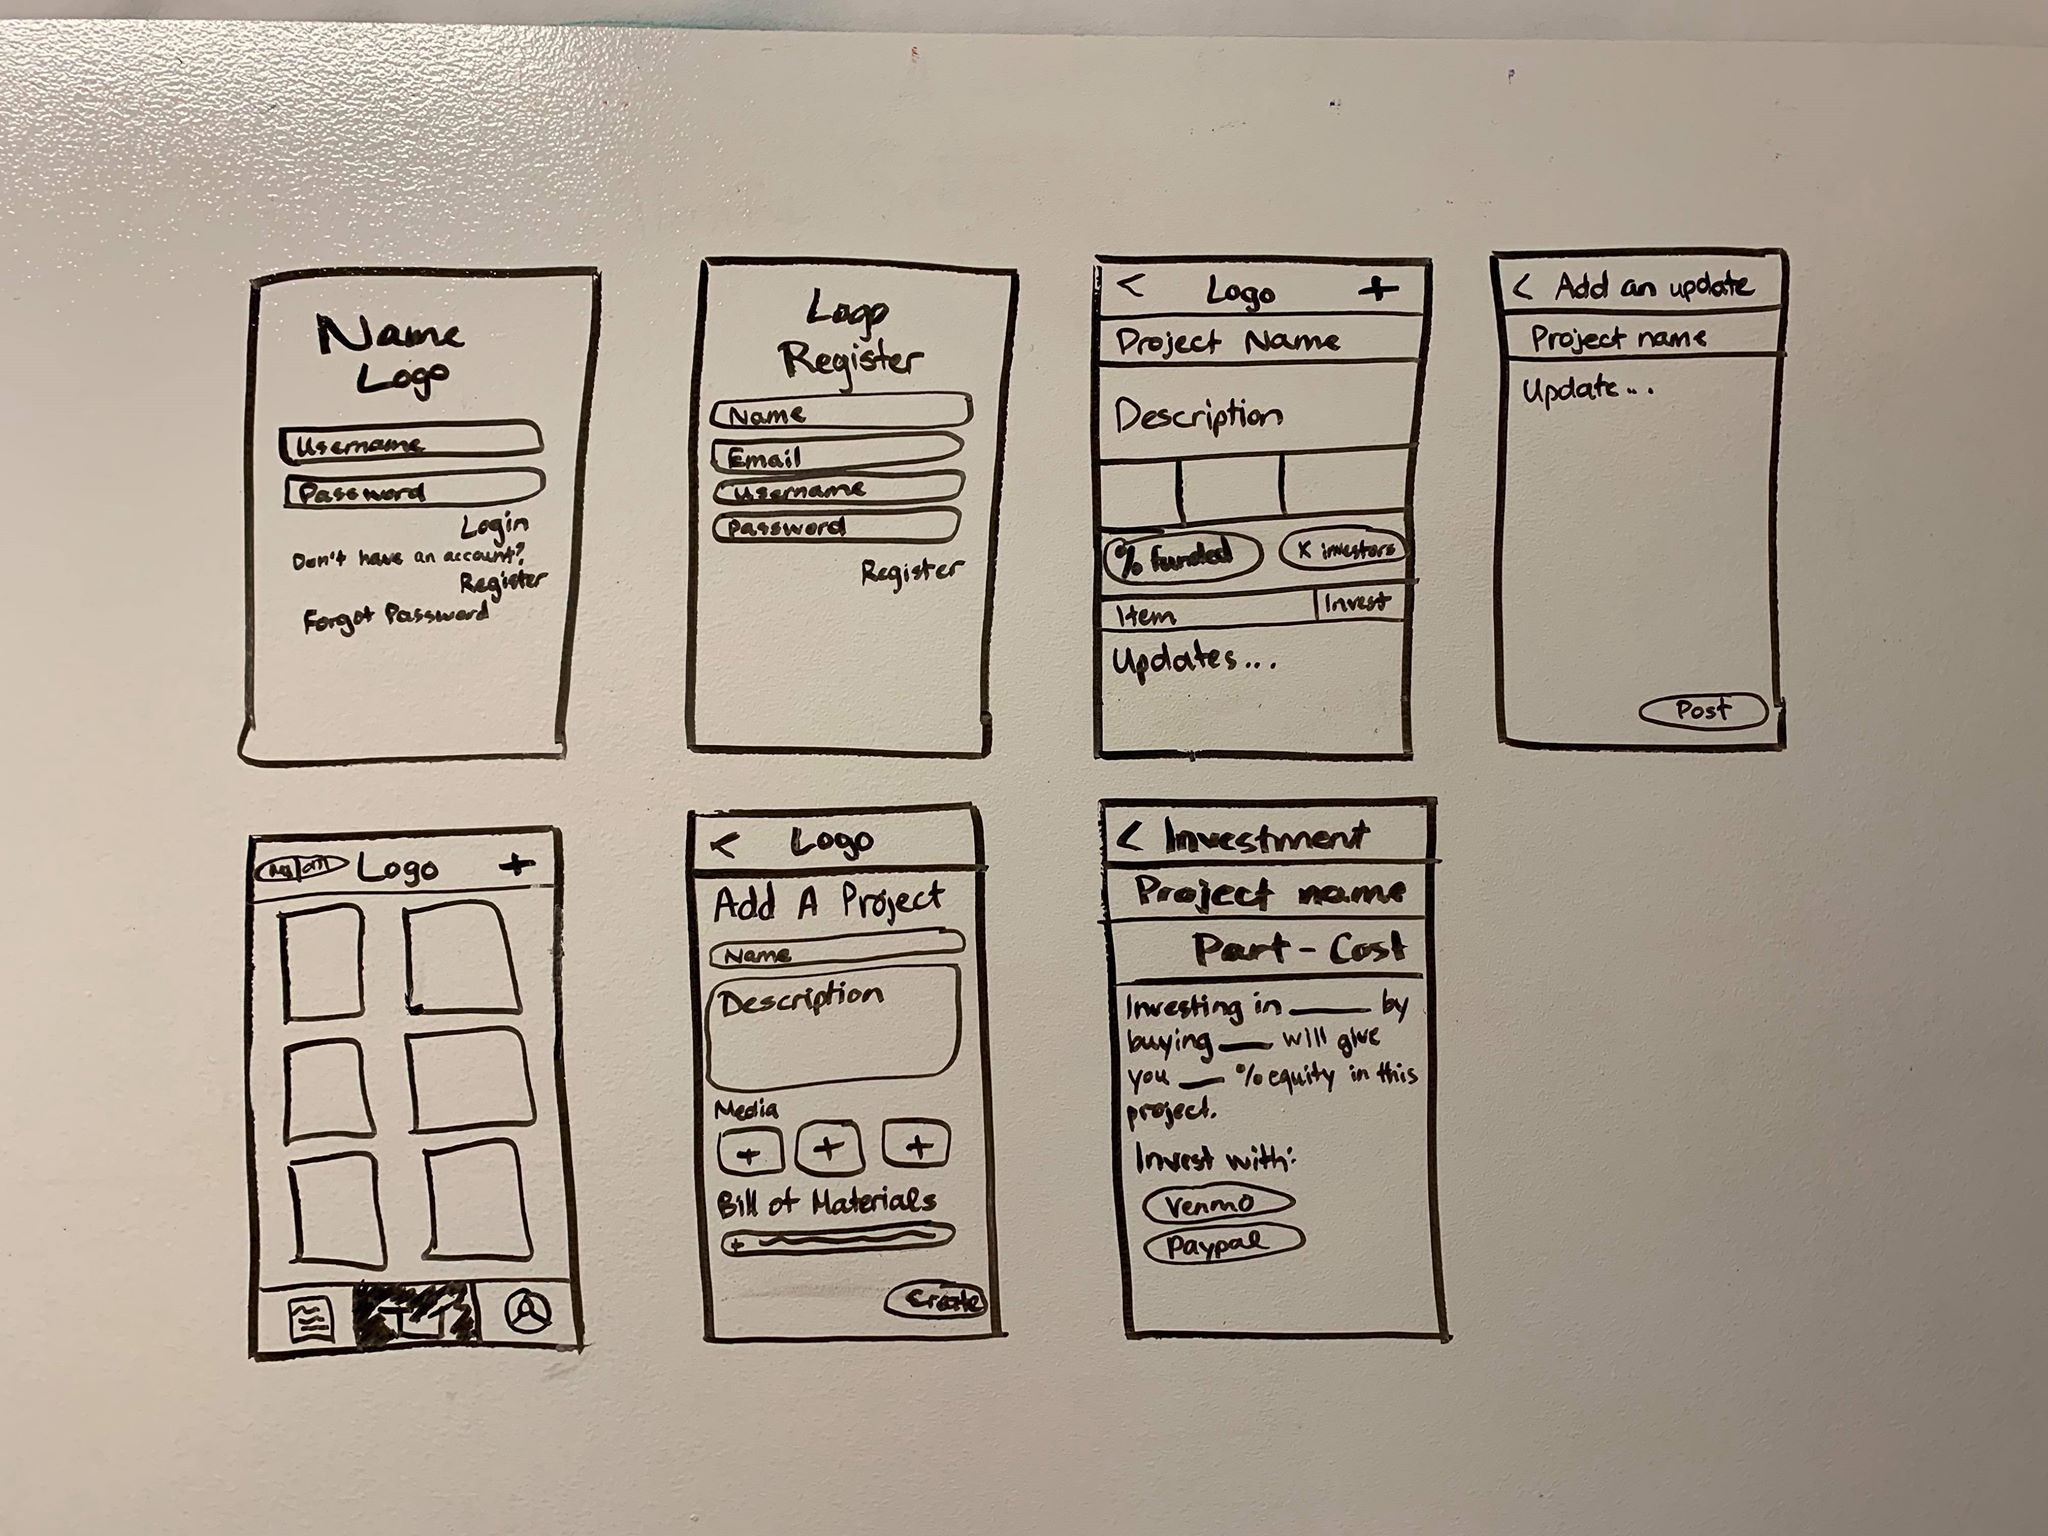 Name
Logo
Username
Password
Login
Don't have an account?
Register
Forgot Password
Logo
Register
Name
Email
Username
Password
Register
< Logo +
Project Name
Description
% funded
X investors
Item
Invest
Updates...
< Add an update
Project name
Update...
Post
My All
Logo +
< Logo
Add A Project
Name
Description
Media
+ + +
Bill of Materials
+
Create
< Investment
Project name
Part - Cost
Investing in ____ by
buying ___ will give
you ___ % equity in this
project.
Invest with:
Venmo
Paypal